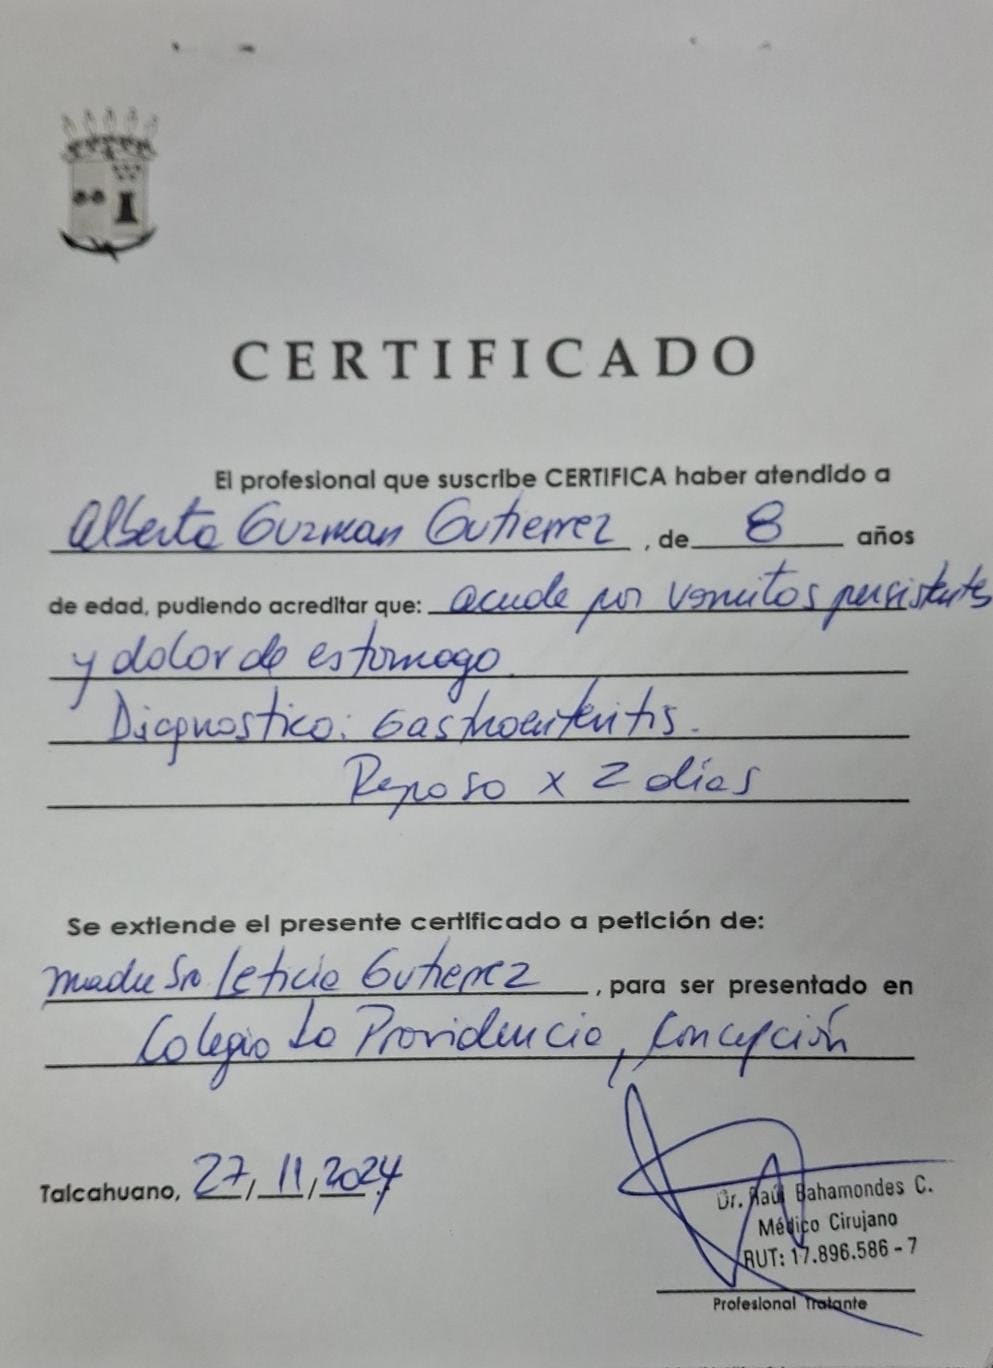 CERTIFICADO
El profesional que suscribe CERTIFICA haber atendido a
Alberto Guzman Gutierrez, de 8 años
de edad, pudiendo acreditar que: acude por vomitos persistentes
y dolor de estomago
Diagnostico: Gastroenteritis.
Reposo x 2 días
Se extiende el presente certificado a petición de:
madre Sra Leticia Gutierrez, para ser presentado en
Colegio La Providencia, Concepción
Talcahuano, 27/11/2024
Dr. Raúl Bahamondes C.
Médico Cirujano
RUT: 17.896.586-7
Profesional Tratante